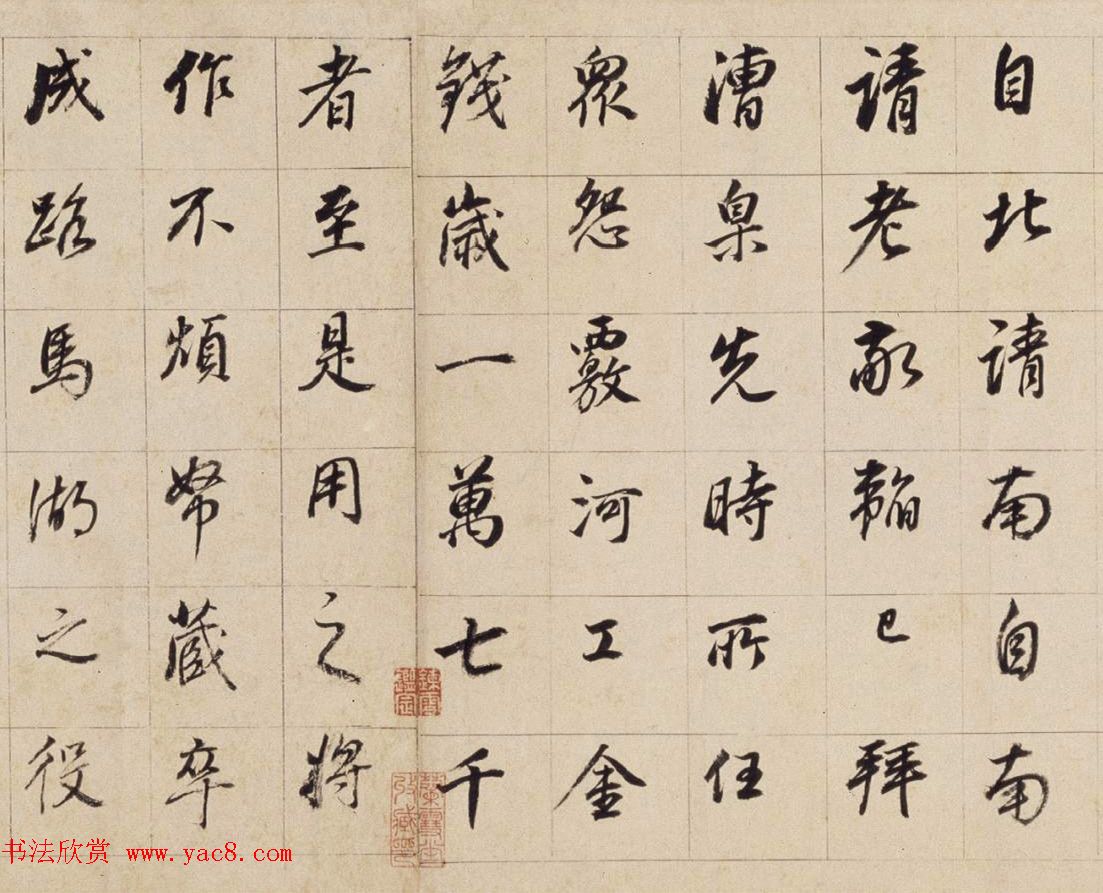 自北請南自南
請老韜已拜
漕臬先時所任
眾怨覈河工金
錢歲一萬七千
者至是用之將
作不煩帑藏卒
成路馬湖之役
书法欣赏 www.yac8.com